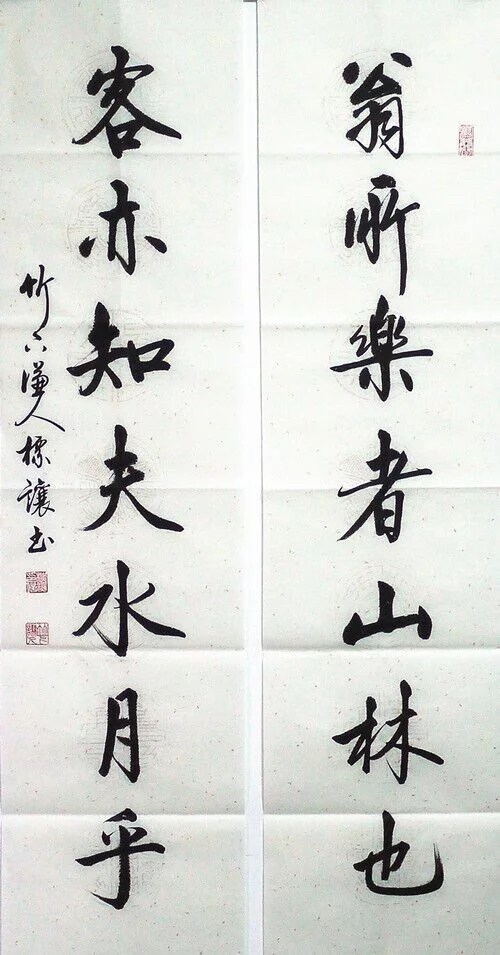 翁所樂者山林也
客亦知夫水月乎
竹下謙人標讓书